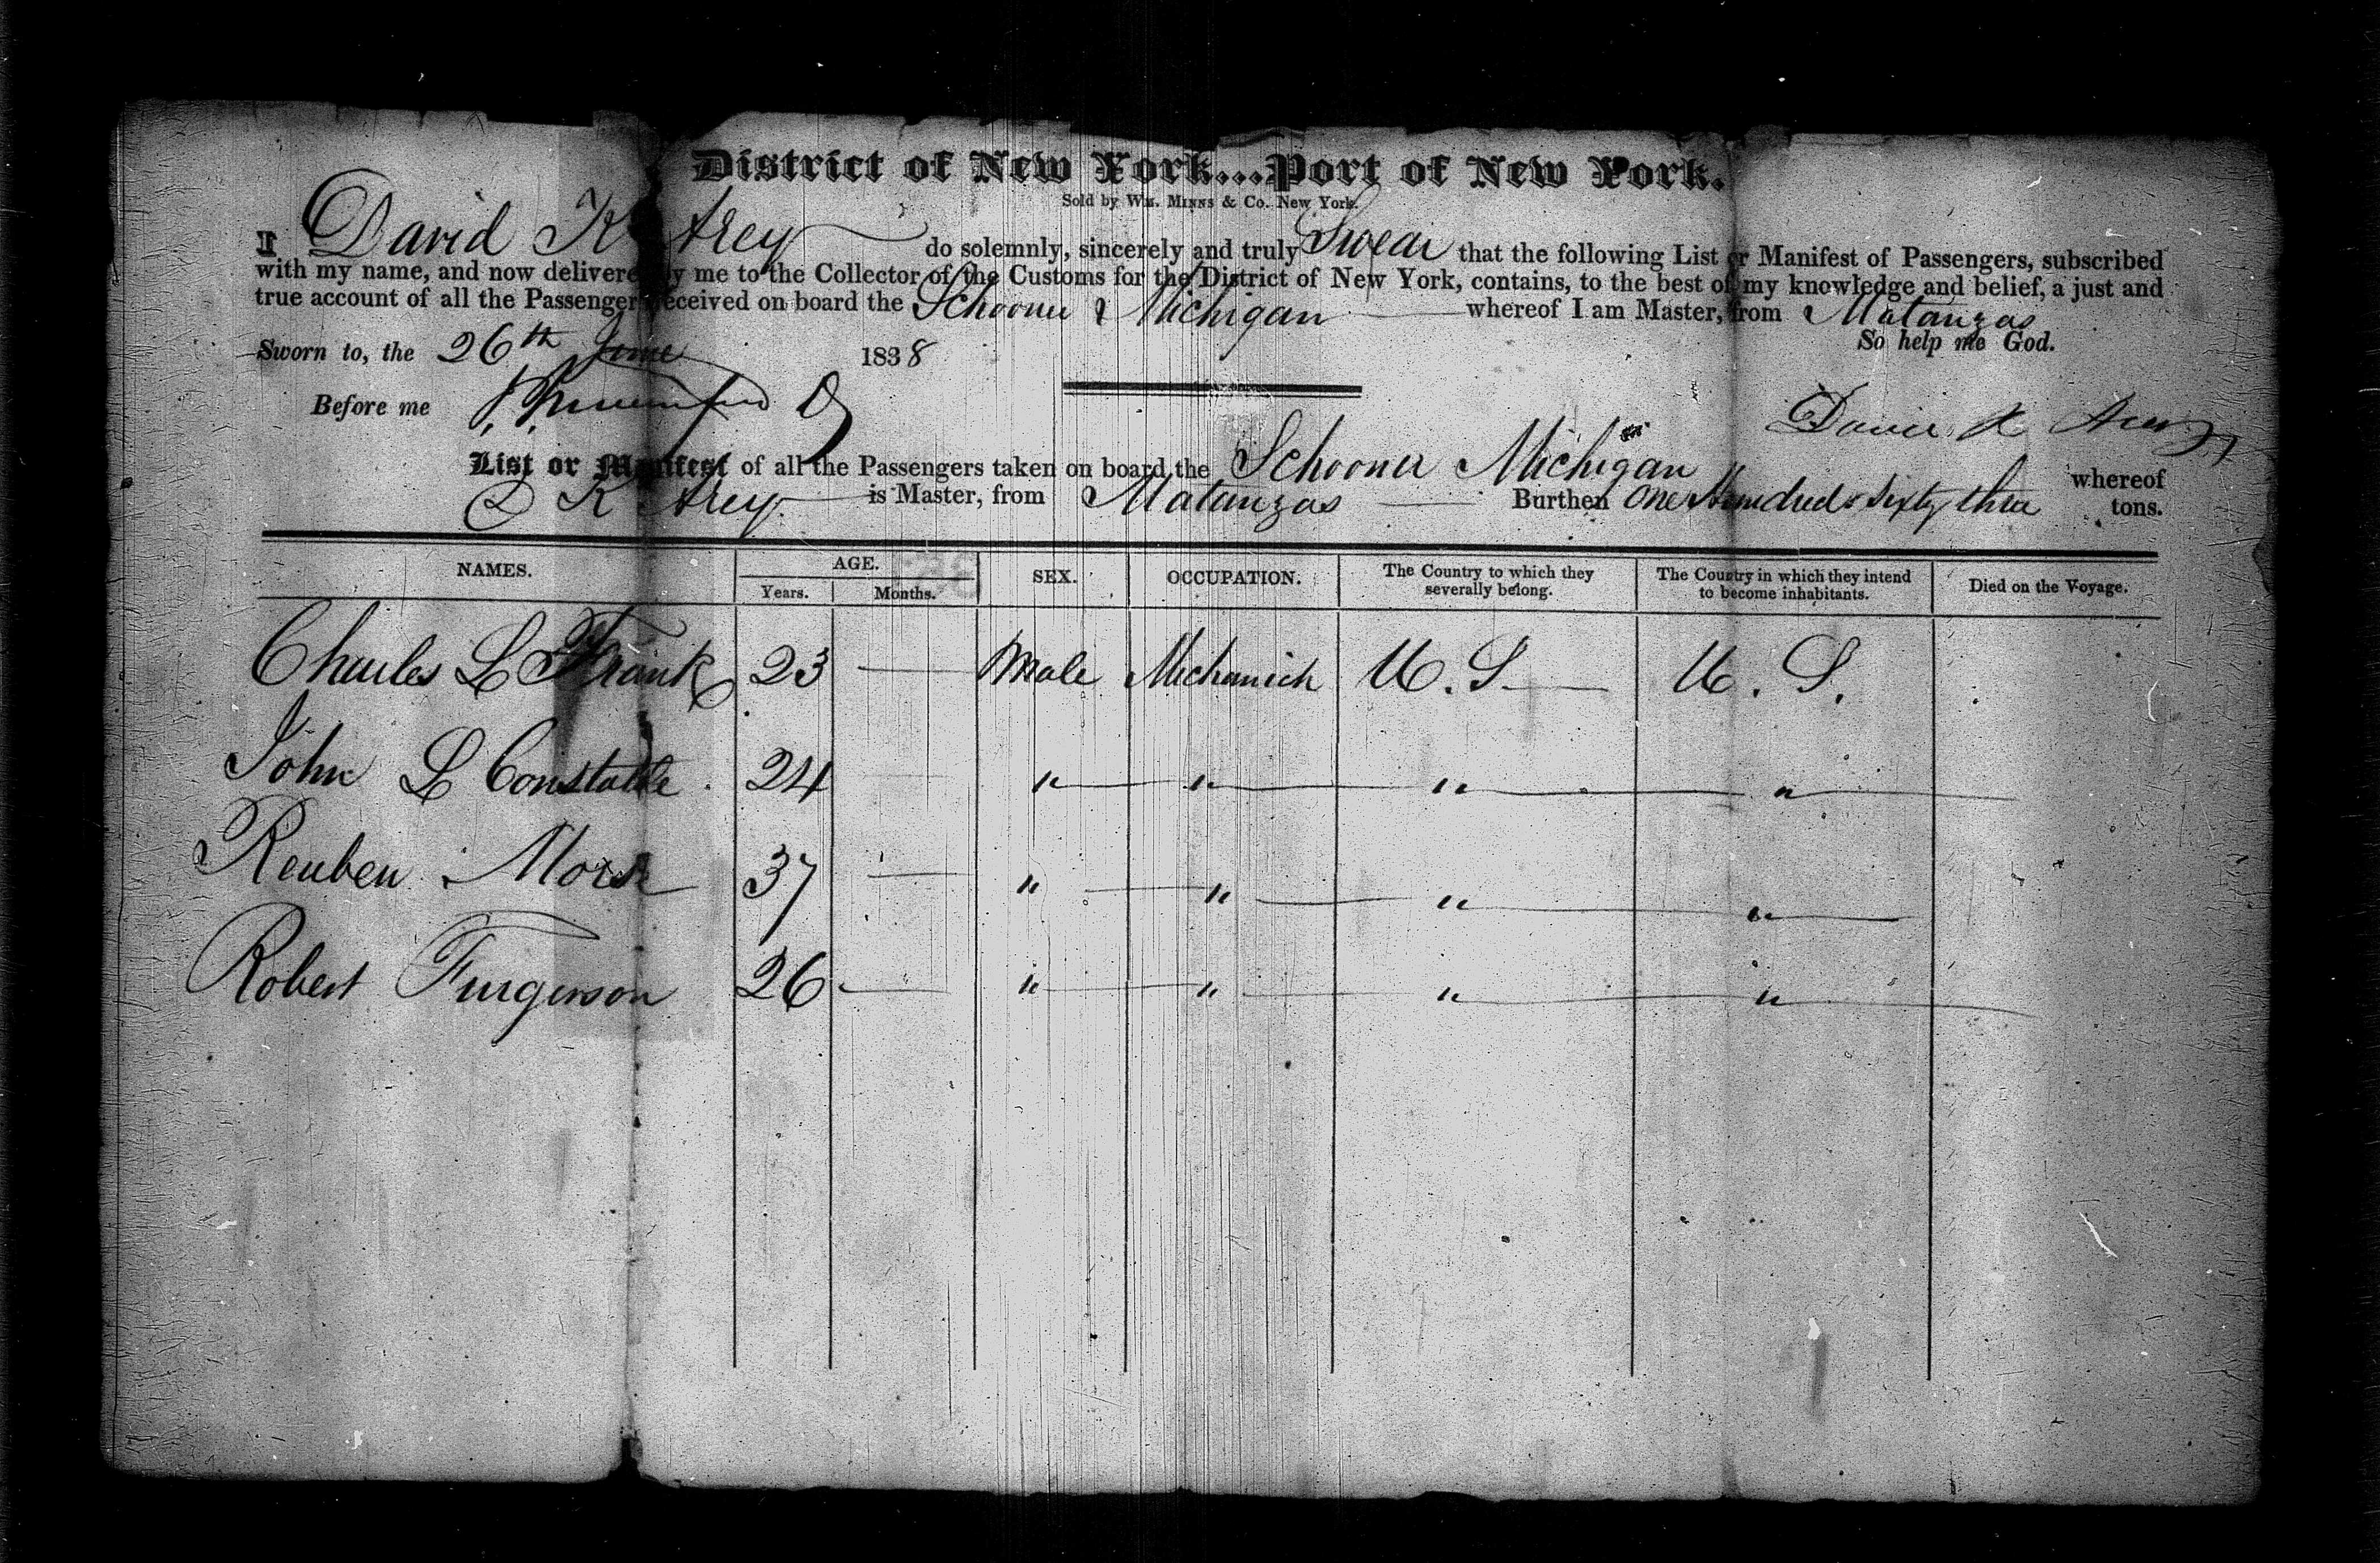 District of New York...Port of New York.
Sold by Wm. Minns & Co. New York.
I David K Arey do solemnly, sincerely and truly Swear that the following List or Manifest of Passengers, subscribed
with my name, and now delivered by me to the Collector of the Customs for the District of New York, contains, to the best of my knowledge and belief, a just and
true account of all the Passengers received on board the Schooner Michigan whereof I am Master, from Matanzas
So help me God.
Sworn to, the 26th June 1838
Before me
David K Arey
List or Manifest of all the Passengers taken on board the Schooner Michigan whereof
D K Arey is Master, from Matanzas Burthen One Hundred & Sixty three tons.
NAMES. AGE. SEX. OCCUPATION. The Country to which they severally belong. The Country in which they intend to become inhabitants. Died on the Voyage.
Years. Months.
Charles L Frank 23 Male Mechanick U. S. U. S.
John L Constable 24 " " " "
Reuben Morse 37 " " " "
Robert Furgerson 26 " " " "